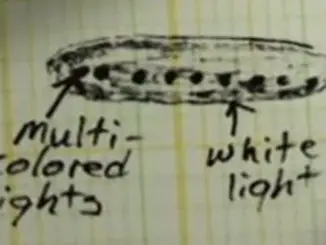 multi-
colored
ights
white
light